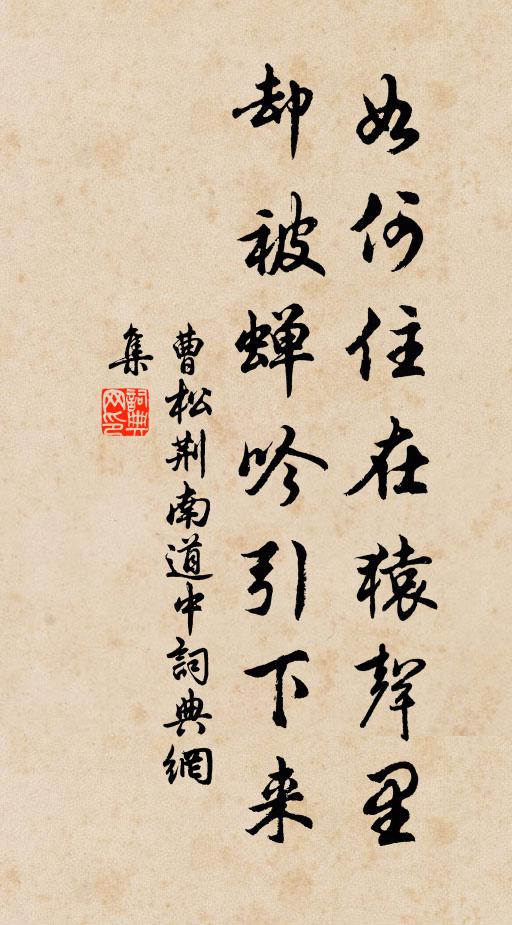 如何住在猿聲里
却被蝉吟引下来
曹松荆南道中詞典網
集
詞典
网印